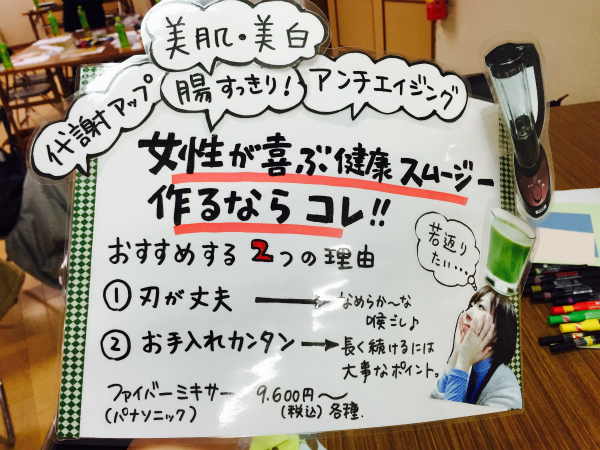 美肌・美白
代謝アップ
腸すっきり!
アンチエイジング
女性が喜ぶ健康スムージー
作るならコレ!!
おすすめする2つの理由
① 刃が丈夫 → なめらか〜な
喉ごし♪
② お手入れカンタン → 長く続けるには
大事なポイント。
若返り
たい…
ファイバーミキサー 9.600円〜
(パナソニック) (税込) 各種.